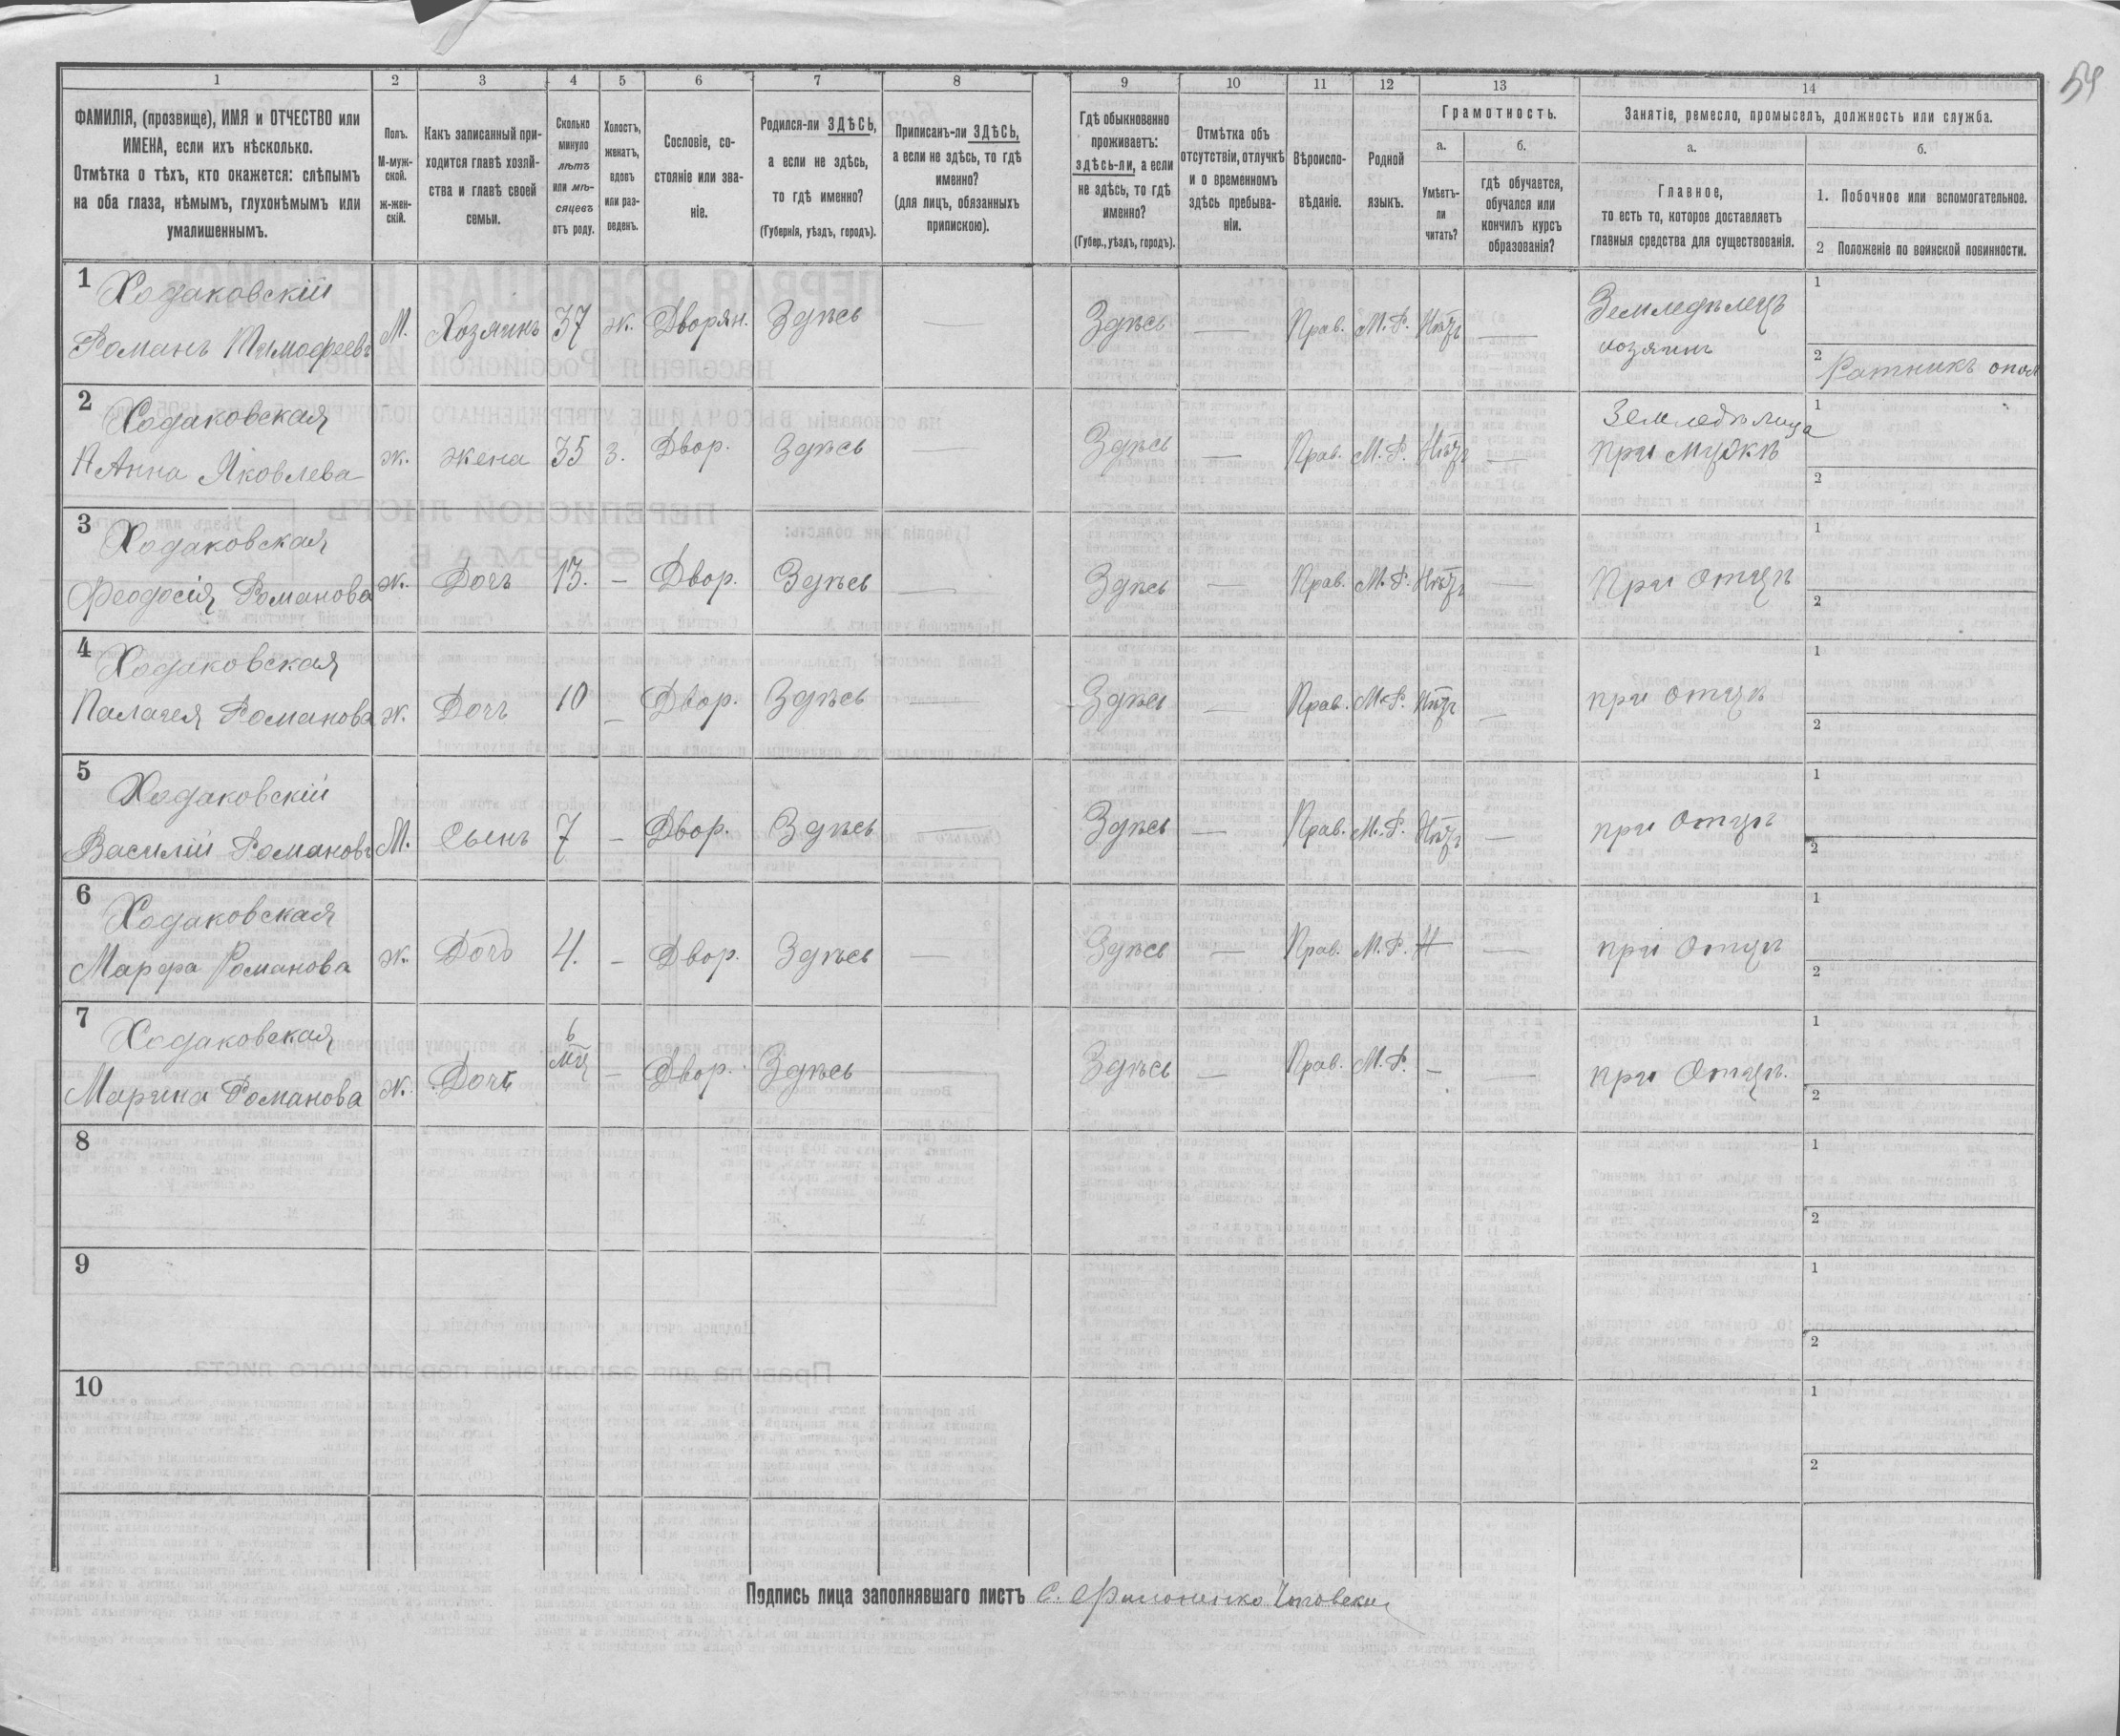 54
1 2 3 4 5 6 7 8 9 10 11 12 13 14
ФАМИЛІЯ, (прозвище), ИМЯ и ОТЧЕСТВО или
ИМЕНА, если ихъ нѣсколько.
Отмѣтка о тѣхъ, кто окажется: слѣпымъ
на оба глаза, нѣмымъ, глухонѣмымъ или
умалишеннымъ.
Полъ.
М-муж-
ской.
Ж-жен-
скій.
Какъ записанный при-
ходится главѣ хозяй-
ства и главѣ своей
семьи.
Сколько
минуло
лѣтъ
или мѣ-
сяцевъ
отъ роду.
Холостъ,
женатъ,
вдовъ
или раз-
веденъ.
Сословіе, со-
стояніе или зва-
ніе.
Родился-ли ЗДѢСЬ,
а если не здѣсь,
то гдѣ именно?
(Губернія, уѣздъ, городъ).
Приписанъ-ли ЗДѢСЬ,
а если не здѣсь, то гдѣ
именно?
(для лицъ, обязанныхъ
припискою).
Гдѣ обыкновенно
проживаетъ:
здѣсь-ли, а если
не здѣсь, то гдѣ
именно?
(Губер., уѣздъ, городъ).
Отмѣтка объ
отсутствіи, отлучкѣ
и о временномъ
здѣсь пребыва-
ніи.
Вѣроиспо-
вѣданіе.
Родной
языкъ.
Грамотность.
а.
Умѣетъ-
ли
читать?
б.
гдѣ обучается,
обучался или
кончилъ курсъ
образованія?
Занятіе, ремесло, промыселъ, должность или служба.
а.
Главное,
то есть то, которое доставляетъ
главныя средства для существованія.
б.
1. Побочное или вспомогательное.
2 Положеніе по воинской повинности.
1 Ходаковскій 1
Романъ Тимофеевъ М. Хозяинъ 37 ж. Дворян. Здѣсь — Здѣсь — Прав. М.Р. Нѣтъ — Земледѣлецъ
хозяинъ
2 Ратникъ опол
2 Ходаковская Земледѣлица 1
Анна Яковлева ж. жена 35 З. Двор. Здѣсь — Здѣсь — Прав. М.Р. Нѣтъ — при мужѣ
2
3 Ходаковская 1
Феодосія Романова ж. Дочь 13. — Двор. Здѣсь — Здѣсь — Прав. М.Р. Нѣтъ — При отцѣ
2
4 Ходаковская 1
Палагея Романова ж. Дочь 10 — Двор. Здѣсь — Здѣсь — Прав. М.Р. Нѣтъ — при отцѣ
2
5 Ходаковскій 1
Василій Романовъ М. Сынъ 7 — Двор. Здѣсь — Здѣсь — Прав. М.Р. Нѣтъ — при отцѣ
2
6 Ходаковская 1
Марфа Романова ж. Дочь 4. — Двор. Здѣсь — Здѣсь — Прав. М.Р. Н — при отцѣ
2
7 Ходаковская 6 1
Марина Романова ж. Дочь мц — Двор. Здѣсь Здѣсь — Прав. М.Р. — — при Отцѣ.
2
8 1
2
9 1
2
10 1
2
Подпись лица заполнявшаго листъ С. Филоненко